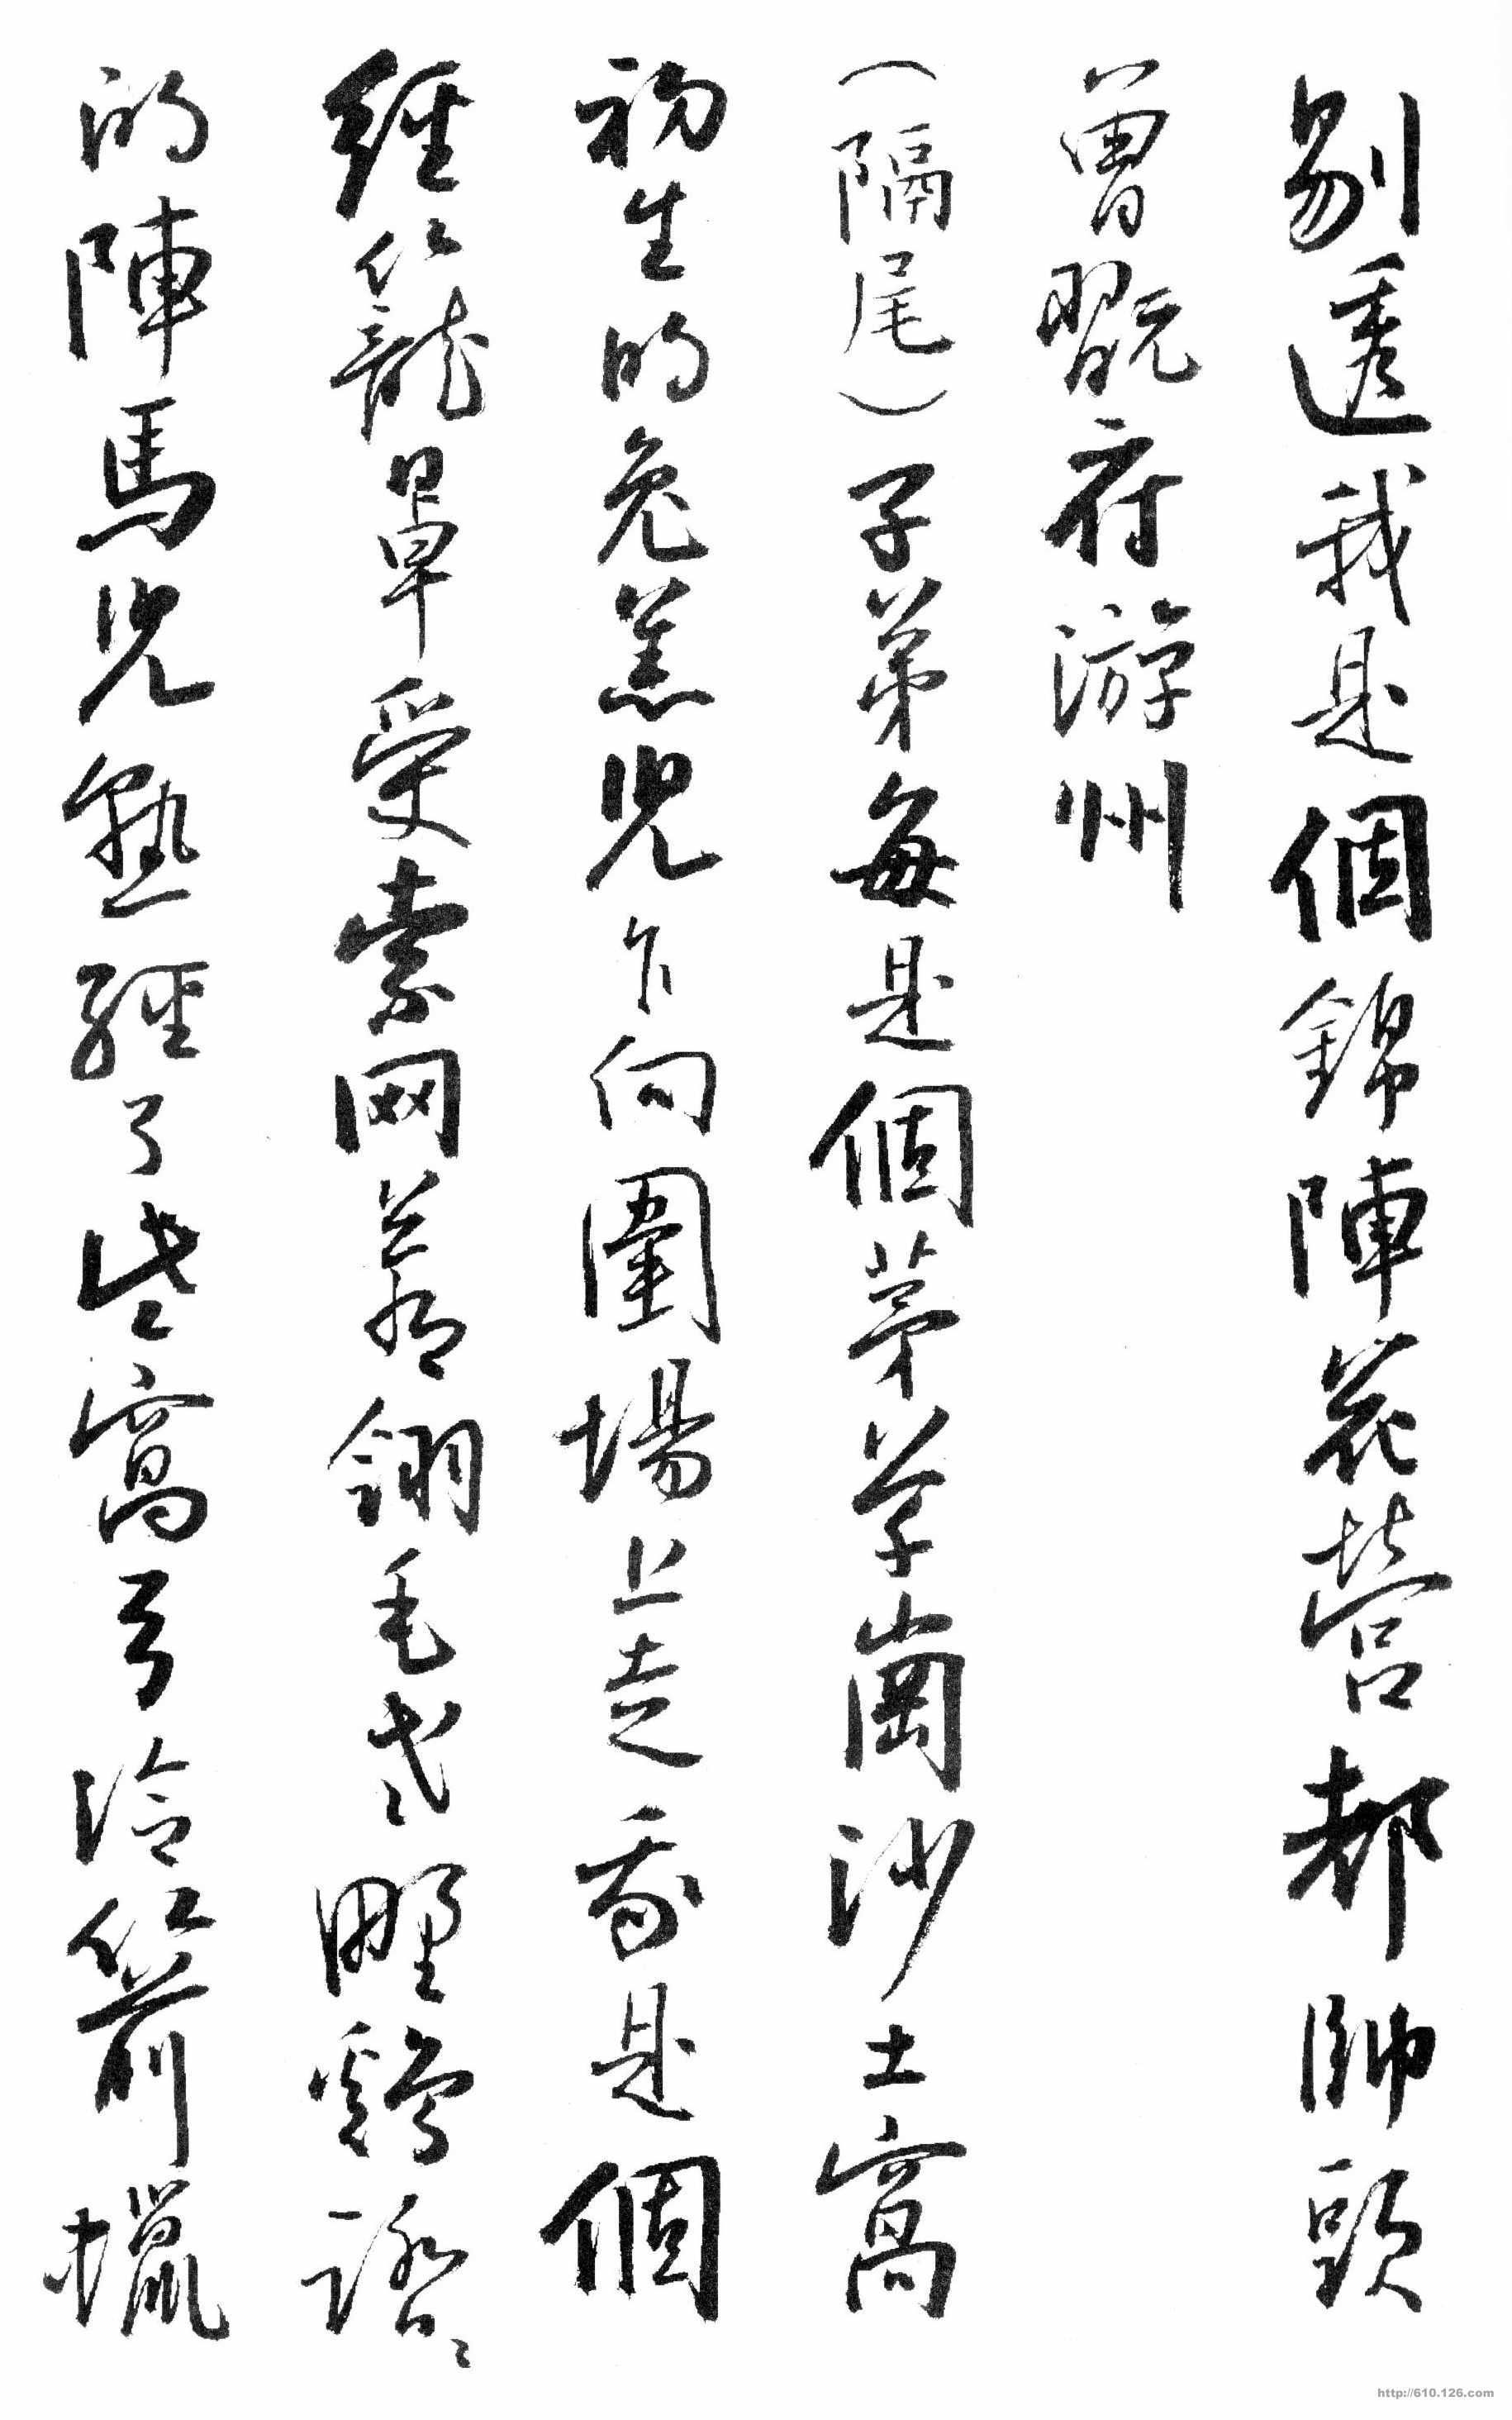 剔透我是個錦陣花營都帥頭
曾翫府游州
（隔尾）子弟每是個茅草崗沙土窩
初生的兔羔兒乍向圍場上走我是個
經籠罩受索网蒼翎毛老野雞蹅〻
的陣馬兒熟經了些窩弓冷箭蠟
http://610.126.com